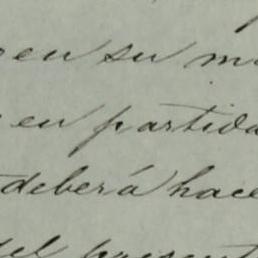 en su m
en partida
deberá hace
del present